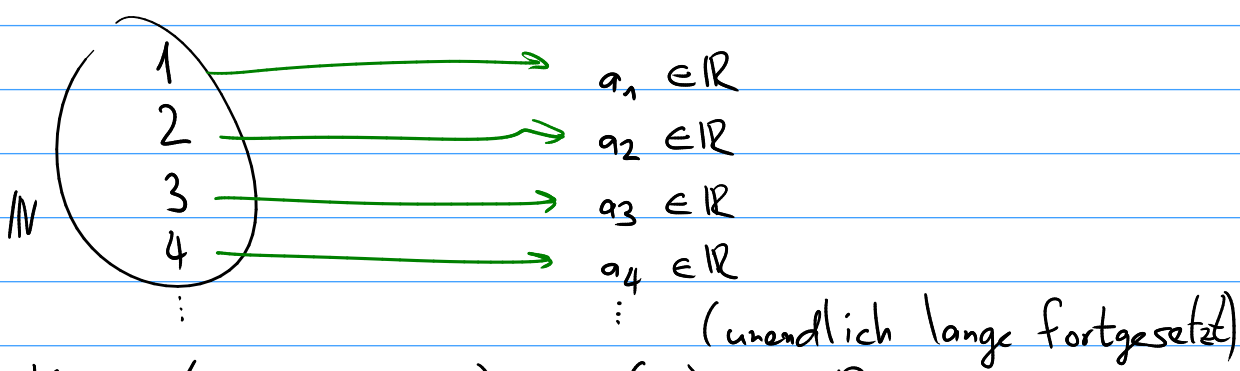 1 a₁ ∈ ℝ
2 a₂ ∈ ℝ
3 a₃ ∈ ℝ
ℕ
4 a₄ ∈ ℝ
⋮ ⋮ (unendlich lange fortgesetzt)